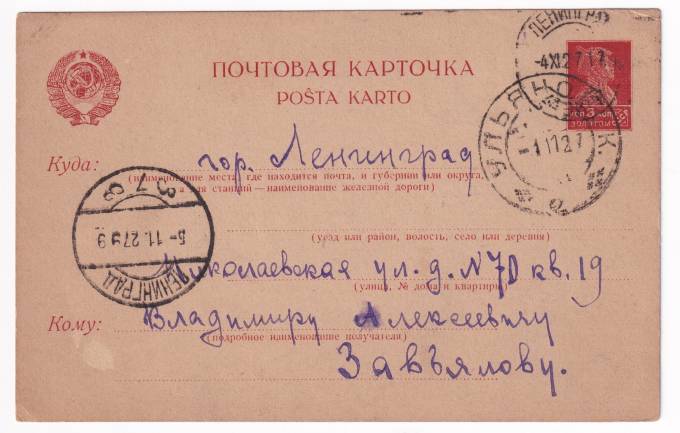 ЛЕНИНГРАД
-4XI27 17
ПОЧТОВАЯ КАРТОЧКА
POŜTA KARTO
УЛЬЯНОВСК
ЗОЛОТОМ
Куда: гор. Ленинград
(наименование места, где находится почта, и губернии или округа,
а для станций — наименование железной дороги)
3 7 8
5-11.27 9
ЛЕНИНГРАД
(уезд или район, волость, село или деревня)
Николаевская ул. д. N70 кв. 19
(улица, № дома и квартиры)
Кому: Владимиру Алексеевичу
(подробное наименование получателя)
Завьялову.